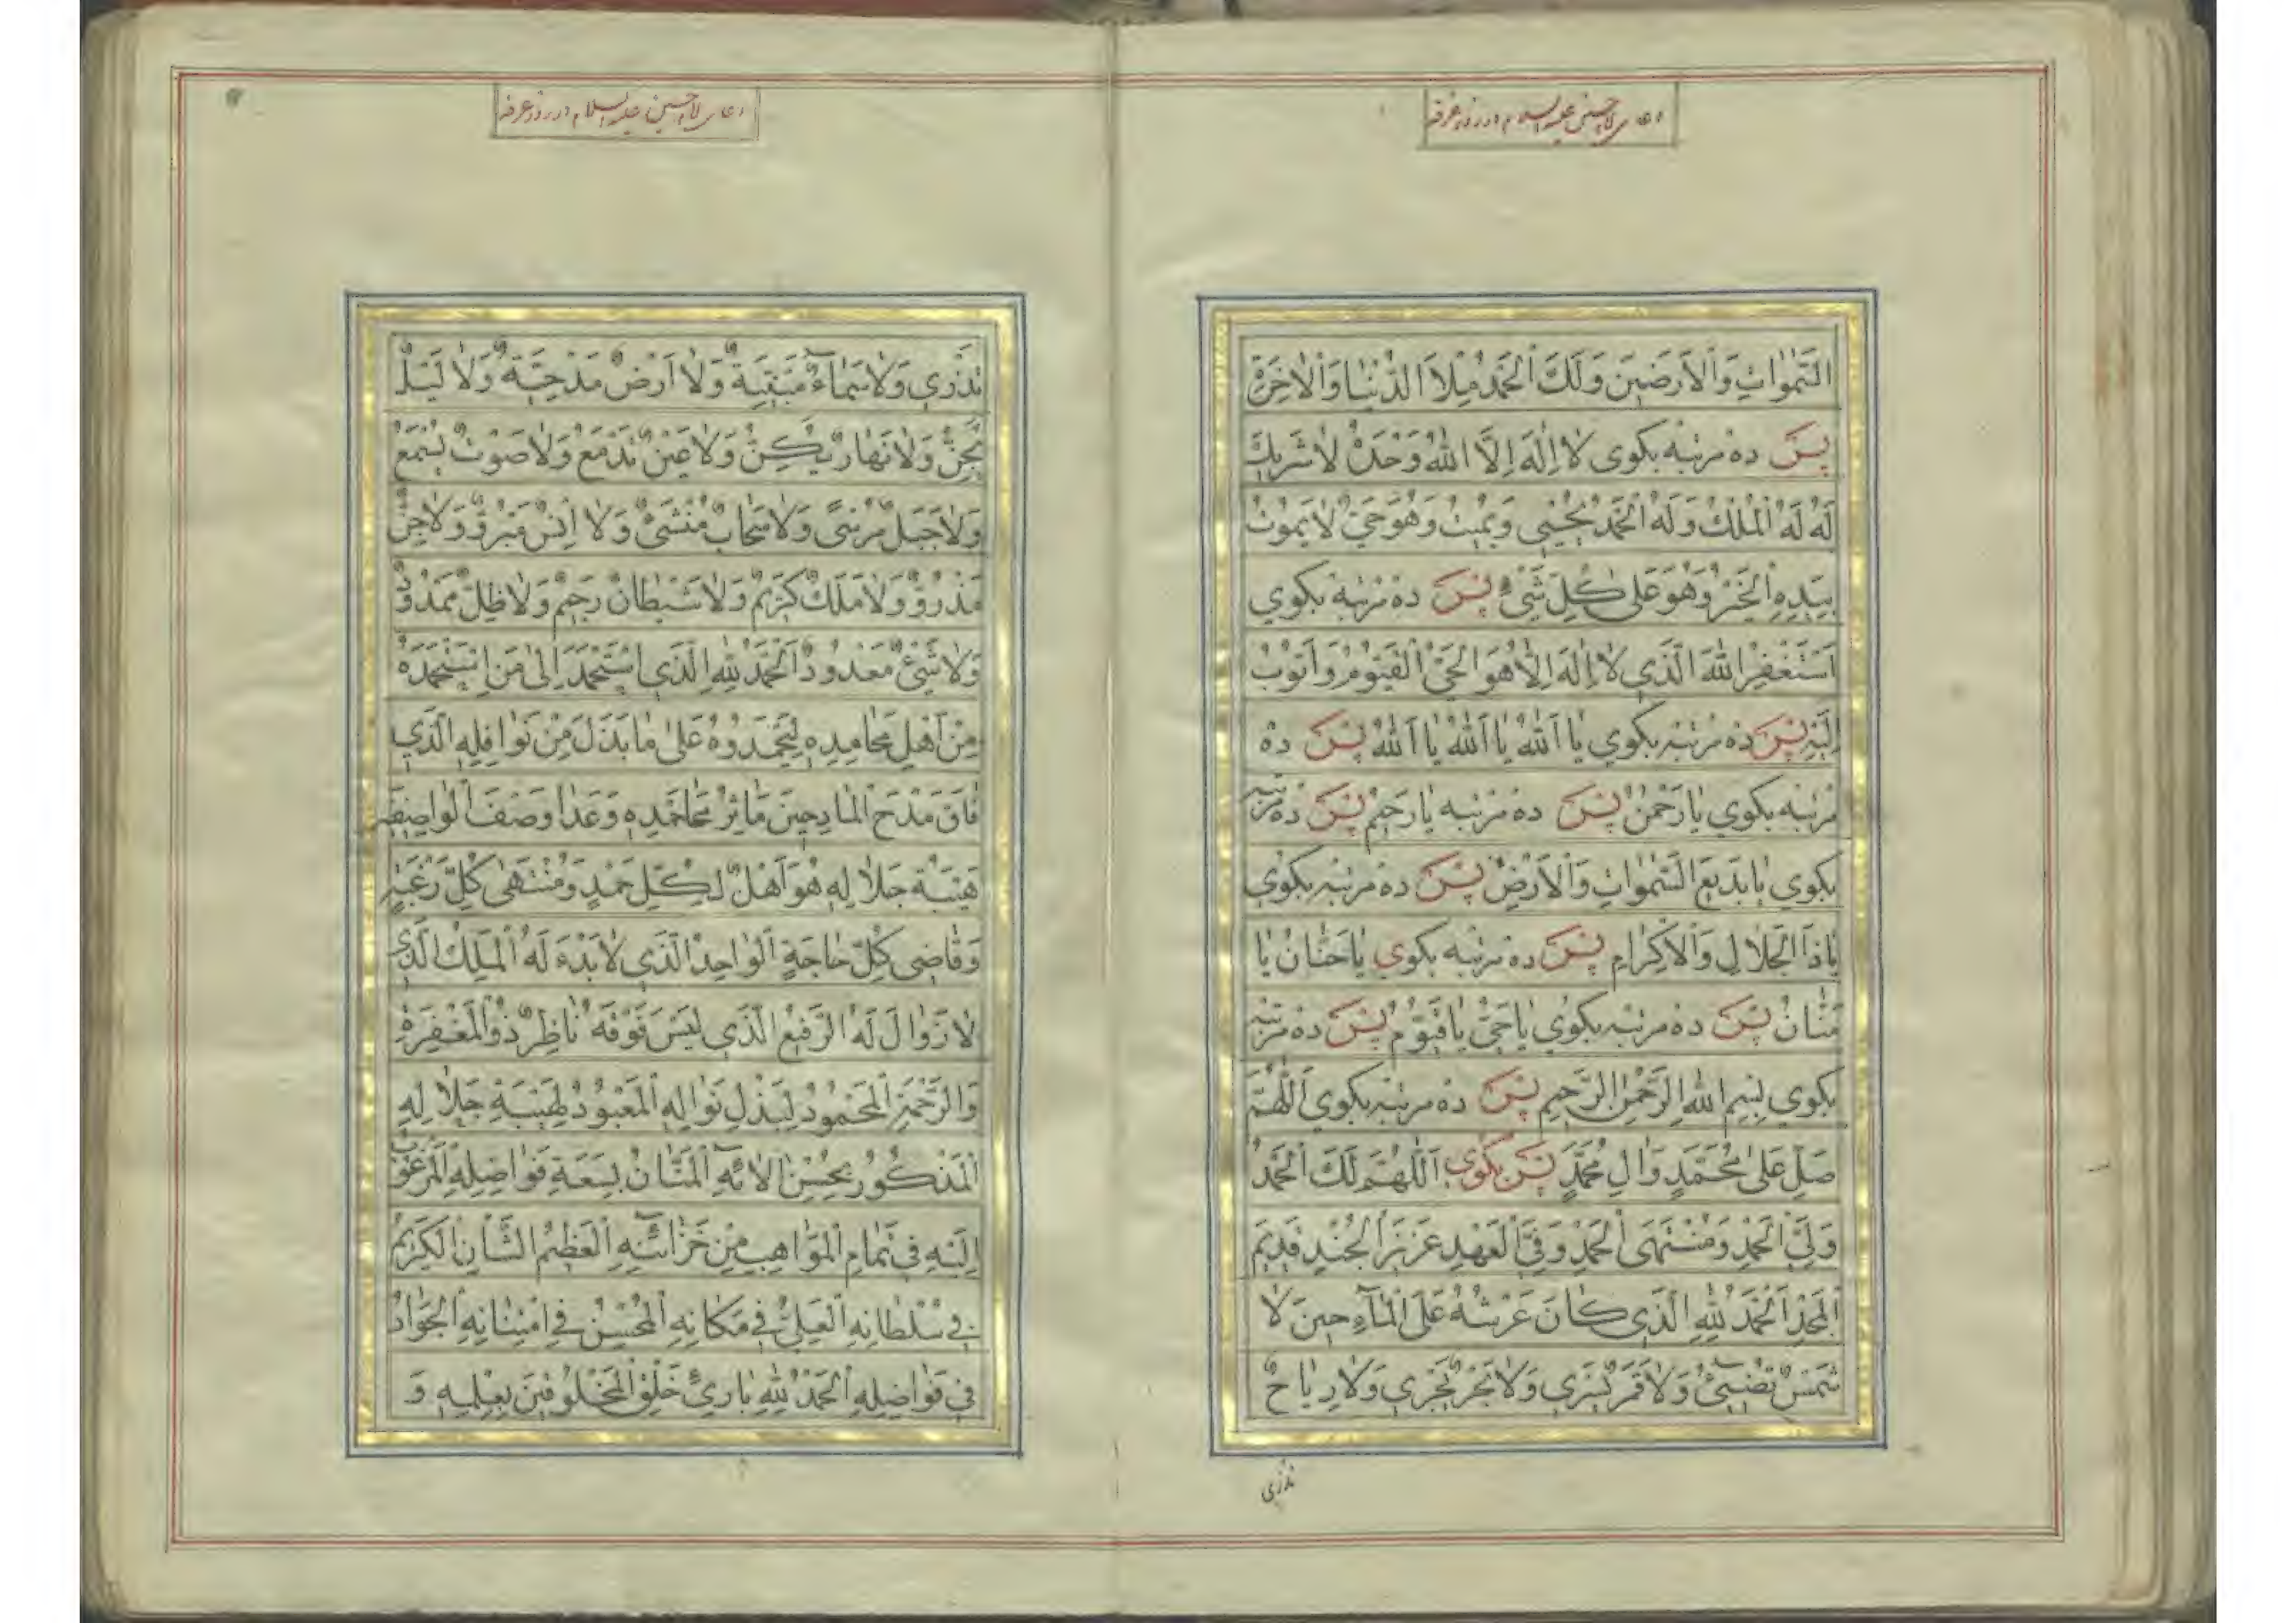 دعای امام حسین علیه السلام در روز عرفه
السَّمٰوٰاتِ وَالْاَرَضٖینَ وَلَكَ الْحَمْدُ مِلْاَ الدُّنْیٰا وَالْاٰخِرَةِ
پس ده مرتبه بکوی لٰا اِلٰهَ اِلَّا اللهُ وَحْدَهُ لٰا شَرٖیكَ
لَهُ لَهُ الْمُلْكُ وَلَهُ الْحَمْدُ یُحْیٖی وَیُمٖیتُ وَهُوَ حَیٌّ لٰا یَمُوتُ
بِیَدِهِ الْخَیْرُ وَهُوَ عَلیٰ كُلِّ شَیْءٍ پس ده مرتبه بکوی
اَسْتَغْفِرُ اللهَ الَّذٖی لٰا اِلٰهَ اِلّٰا هُوَ الْحَیُّ الْقَیُّومُ وَاَتُوبُ
اِلَیْهِ پس ده مرتبه بکوی یٰا اَللهُ یٰا اَللهُ یٰا اَللهُ پس ده
مرتبه بکوی یٰا رَحْمٰنُ پس ده مرتبه یٰا رَحٖیمُ پس ده مرتبه
بکوی یٰا بَدٖیعَ السَّمٰوٰاتِ وَالْاَرْضِ پس ده مرتبه بکوی
یٰا ذَا الْجَلٰالِ وَالْاِكْرٰامِ پس ده مرتبه بکوی یٰا حَنّٰانُ یٰا
مَنّٰانُ پس ده مرتبه بکوی یٰا حَیُّ یٰا قَیُّومُ پس ده مرتبه
بکوی بِسْمِ اللهِ الرَّحْمٰنِ الرَّحٖیمِ پس ده مرتبه بکوی اَللّٰهُمَّ
صَلِّ عَلیٰ مُحَمَّدٍ وَاٰلِ مُحَمَّدٍ پس بکوی اَللّٰهُمَّ لَكَ الْحَمْدُ
وَلِیَّ الْحَمْدِ وَمُنْتَهَی الْحَمْدِ وَفِیَّ الْعَهْدِ عَزٖیزَ الْجُنْدِ قَدٖیمَ
الْمَجْدِ اَلْحَمْدُ لِلّٰهِ الَّذٖی كٰانَ عَرْشُهُ عَلَی الْمٰآءِ حٖینَ لٰا
شَمْسٌ تُضٖیٓئُ وَلٰا قَمَرٌ یَسْرٖی وَلٰا بَحْرٌ یَجْرٖی وَلٰا رِیٰاحٌ
تذری
دعای امام حسین علیه السلام در روز عرفه
تَذْرٖی وَلٰا سَمٰآءٌ مَبْنِیَّةٌ وَلٰا اَرْضٌ مَدْحِیَّةٌ وَلٰا لَیْلٌ
یُجِنُّ وَلٰا نَهٰارٌ یُكِنُّ وَلٰا عَیْنٌ تَدْمَعُ وَلٰا صَوْتٌ یُسْمَعُ
وَلٰا جَبَلٌ مُرْسیً وَلٰا سَحٰابٌ مُنْشَئٌ وَلٰا اِنْسٌ مَبْرُوٌّ وَلٰا جِنٌّ
مَذْرُوٌّ وَلٰا مَلَكٌ كَرٖیمٌ وَلٰا شَیْطٰانٌ رَجٖیمٌ وَلٰا ظِلٌّ مَمْدُودٌ
وَلٰا شَیْئٌ مَعْدُودٌ اَلْحَمْدُ لِلّٰهِ الَّذٖی اسْتَحْمَدَ اِلیٰ مَنِ اسْتَحْمَدَهُ
مِنْ اَهْلِ مَحٰامِدِهٖ لِیَحْمَدُوهُ عَلیٰ مٰا بَذَلَ مِنْ نَوٰافِلِهِ الَّذٖی
فٰاقَ مَدْحَ الْمٰادِحٖینَ مَاٰثِرُ مَحٰامِدِهٖ وَعَدٰا وَصْفَ الْوٰاصِفٖینَ
هَیْبَةُ جَلٰالِهٖ هُوَ اَهْلٌ لِكُلِّ حَمْدٍ وَمُنْتَهیٰ كُلِّ رَغْبَةٍ
وَقٰاضٖی كُلِّ حٰاجَةٍ اَلْوٰاحِدُ الَّذٖی لٰا بَدْءَ لَهُ الْمَلِكُ الَّذٖی
لٰا زَوٰالَ لَهُ الرَّفٖیعُ الَّذٖی لَیْسَ فَوْقَهُ نٰاظِرٌ ذُو الْمَغْفِرَةِ
وَالرَّحْمَةِ الْمَحْمُودُ لِبَذْلِ نَوٰالِهِ الْمَعْبُودُ لِهَیْبَةِ جَلٰالِهِ
الْمَذْكُورُ بِحُسْنِ اٰلٰائِهِ الْمَنّٰانُ بِسَعَةِ فَوٰاضِلِهِ الْمَرْغُوبُ
اِلَیْهِ فٖی تَمٰامِ الْمَوٰاهِبِ مِنْ خَزٰائِنِهِ الْعَظٖیمُ الشَّأْنِ الْكَرٖیمُ
فٖی سُلْطٰانِهِ الْعَلِیُّ فٖی مَكٰانِهِ الْمُحْسِنُ فِی امْتِنٰانِهِ الْجَوٰادُ
فٖی فَوٰاضِلِهِ الْحَمْدُ لِلّٰهِ بٰارِئِ خَلْقِ الْمَخْلُوقٖینَ بِعِلْمِهٖ وَ